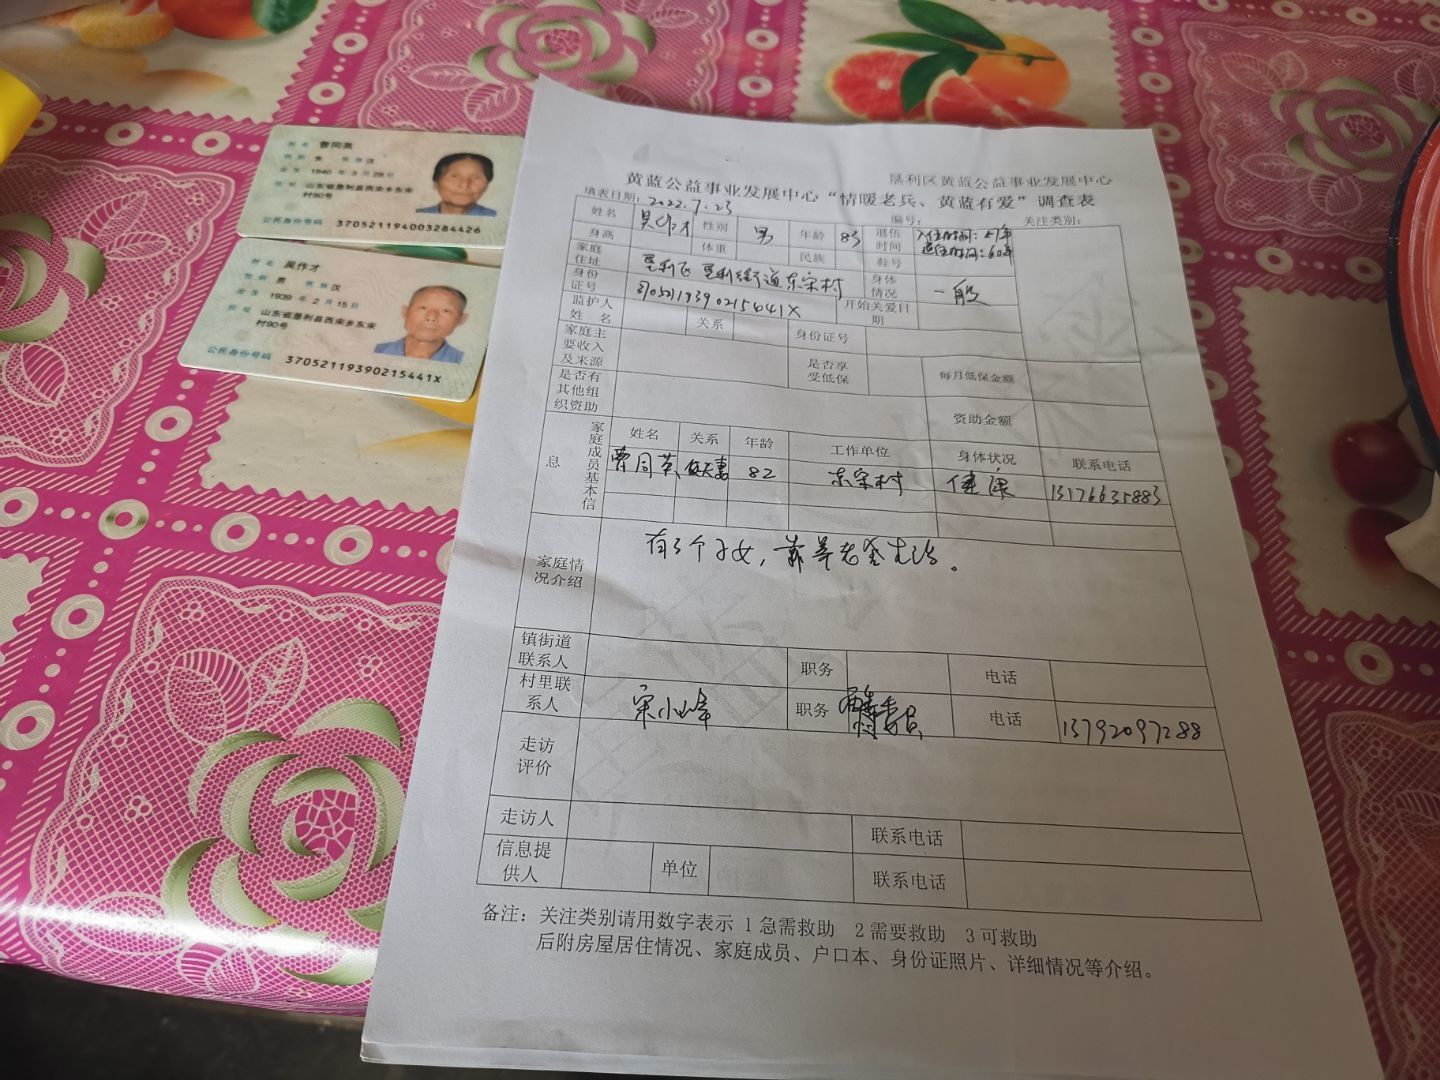 姓名 曹同英
性别 女 民族 汉
出生 1940 年 3 月 28 日
住址 山东省垦利县西宋乡东宋
村90号
公民身份号码 370521194003284426
姓名 吴作才
性别 男 民族 汉
出生 1939 年 2 月 15 日
住址 山东省垦利县西宋乡东宋
村90号
公民身份号码 37052119390215441X
垦利区黄蓝公益事业发展中心
黄蓝公益事业发展中心“情暖老兵、黄蓝有爱”调查表
填表日期: 2022.7.23 编号: 关注类别:
姓名 吴作才 性别 男 年龄 83 退伍时间 入伍时间:57年 退伍时间:60年
身高 体重 民族 鞋号
家庭住址 垦利区垦利街道东宋村 身体情况 一般
身份证号 37052119390215441X 开始关爱日期
监护人姓名 关系 身份证号
家庭主要收入及来源 是否享受低保 每月低保金额
是否有其他组织资助 资助金额
家庭成员基本信息 姓名 关系 年龄 工作单位 身体状况 联系电话
曹同英 夫妻 82 东宋村 健康 13176635883
家庭情况介绍 有3个子女,靠养老金生活。
镇街道联系人 职务 电话
村里联系人 宋小峰 职务 电话 13792097288
走访评价
走访人 联系电话
信息提供人 单位 联系电话
备注:关注类别请用数字表示 1 急需救助 2 需要救助 3 可救助
后附房屋居住情况、家庭成员、户口本、身份证照片、详细情况等介绍。